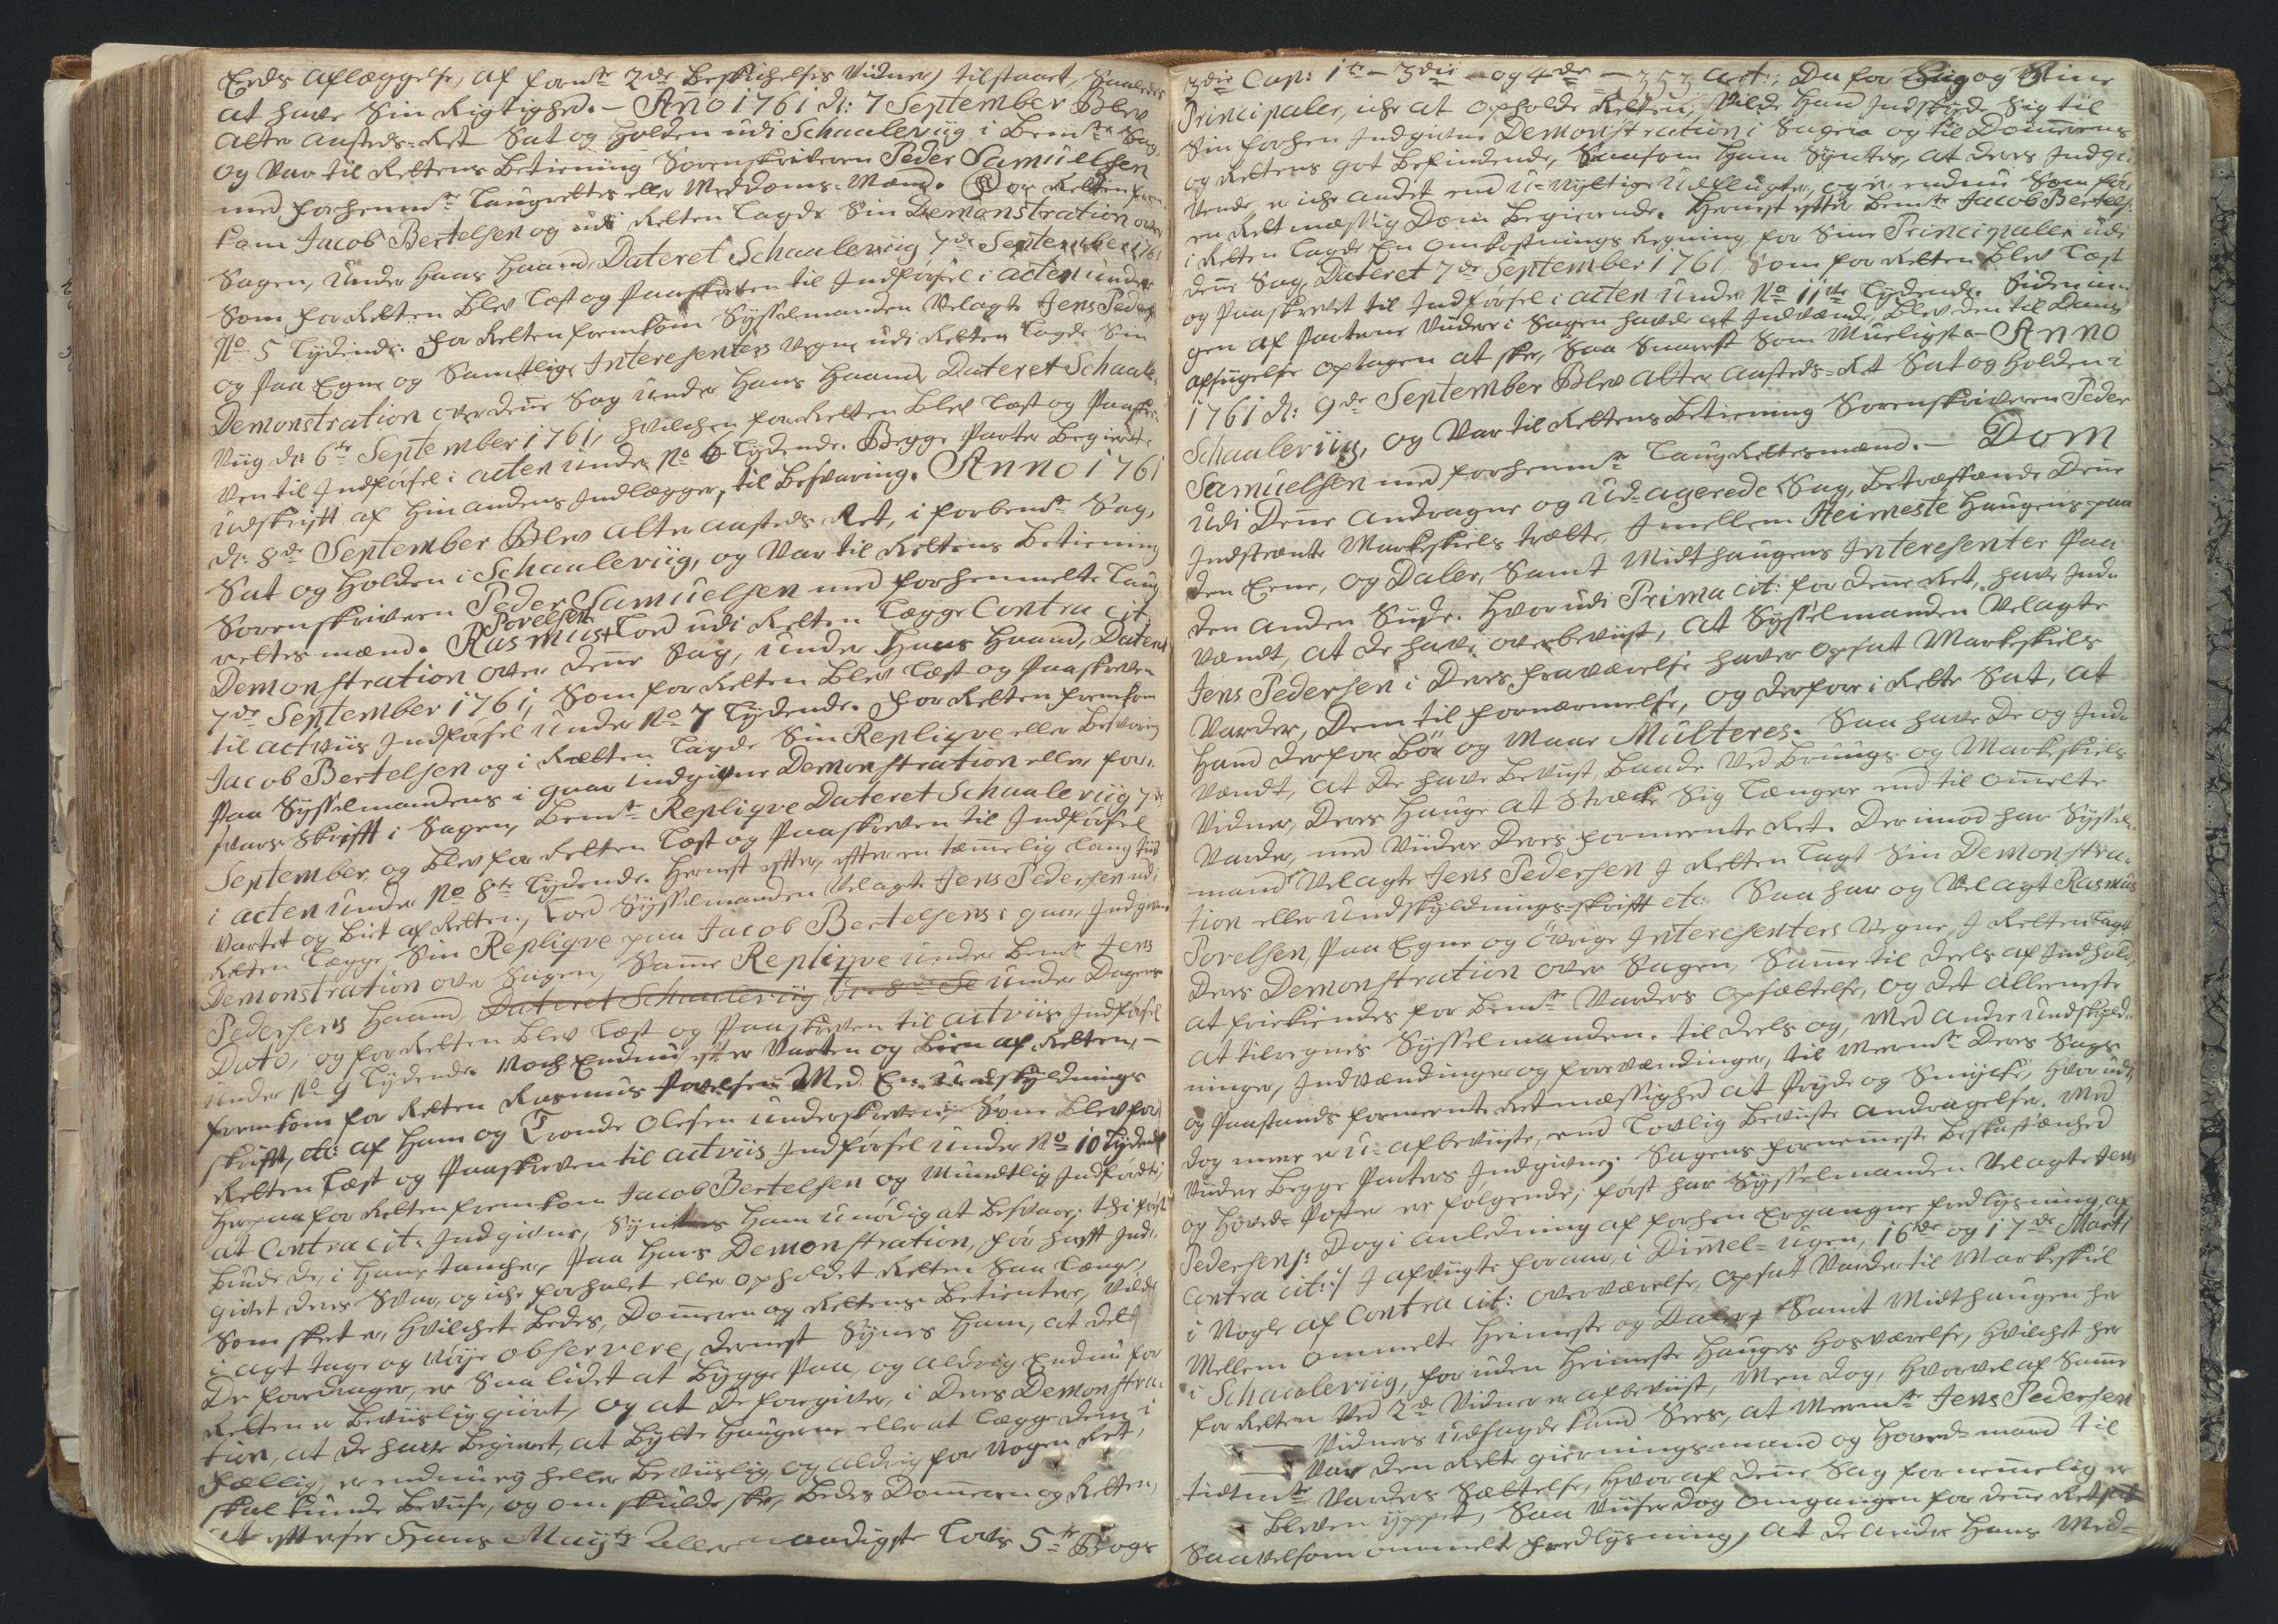 Eeds aflæggelse, af formte 2de Beskichelses Vidner, tilstaaet, Saaledes
at have Sin Rigtighed. - Año 1761 d: 7 September Blev
alter aasteds=Ret Sat og Holden udi Schaaleviig i Bemte Sag,
og Var til Rettens Betiening Sorenskriveren Peder Samuelsen
med forhenmte Laugrettes eller Meddoms=Mænd. For Retten frem-
kom Jacob Bertelsen og udi Retten Lagde Sin Demonstration over
Sagen, under Hans Haand, Dateret Schaaleviig 7de September 1761
Som for Retten Blev Læst og Paaskreven til Indförsel i acten under
No 5 Lydende. For Retten fremkom Sysselmanden Velagte Jens Peders:
og Paa Egne og Samtlige Interesenters Vegne udi Retten Lagde Sin
Demonstration over deñe Sag under Hans Haand, Dateret Schaale-
Viig d: 6te September 1761, hvilchen for Retten Blev Læst og Paaskre-
ven til Indförsel i acten under No 6 Lydende. Begge Parter Begierte
Udskrift af Hinandens Indlægger, til Besvaring. Anno 1761
d: 8de September Blev alter aasteds Ret, i forbemte Sag,
Sat og Holden i Schaaleviig, og Var til Rettens Betiening
Sorenskriveren Peder Samuelsen med forhenmelte Laug
rettesmænd. Rasmus Povelsen Lod udi Retten Lægge Contra cit.
Demonstration over deñe Sag, under Hans Haand, Dateret
7de September 1761, Som for Retten Blev Læst og Paaskreven
til actviis Indförsel under No 7 Lydende. For Retten fremkom
Jacob Bertelsen og i Rætten Lagde Sin Repliqve eller Besvaring
Paa Sysselmandens i gaar indgivne Demonstration eller for-
svars Skrifft i Sagen, Bemte Repliqve Dateret Schaaleviig 7de
September, og Blev for Retten Læst og Paaskreven til Indförsel
i acten under No 8te Lydende. Hernest efter, efter en temmelig Lang tiid
Vartet og Biet af Retten, Lod Sysselmanden Velagte Jens Pedersen udi
Retten Lægge Sin Repliqve paa Jacob Bertelsens i gaar Indgivne
Demonstration over Sagen, Sañe Repliqve under Bemte Jens
Pedersens Haand, Dateret Schaaleviig d: 8de Se under Dagens
Dato, og for Retten Blev Læst og Paaskreven til actviis Indförsel
under No 9 Lydende. Noch Endnu efter Varten og Bien af Retten, -
fremkom for Retten Rasmus Povelsen Med En undskyldnings
skrifft, etc: af Ham og Tronde Olesen underskreven, Som Blev for
Retten Læst og Paaskreven til actviis Indförsel under No 10 Lydende
Herpaa for Retten fremkom Jacob Bertelsen og Mundtlig Indförte,
at Contra cit: Indgivne, Syntes Ham unödig at Besvare; thi först
burde de, i Hans tancher, Paa Hans Demonstration, för hafft Ind-
givet deres Svar, og iche forhalet eller opholdet Retten Saa Længe,
Som skeet er, Hvilchet Bedes, Dommeren og Rettens Betientere, Vilde
i agt tage og Nöye observere, dernest Synes Ham, at det
De fordrager, er Saa lidet at Bygge Paa, og aldrig Endnu for
Retten er Beviislig giört, og at De foregiver, i Deres Demonstra-
tion, at de have Begieret, at Bytte Haugerne eller at Lægge dem i
Fællig, er endnu ey heller Beviislig, og aldrig for Nogen Ret,
skal kunde Beviise, og om skulde ske, Bedes Dommeren og Retten,
at efterse Hans Mayts Allernaadigste Lovs 5te Bogs
3die Cap: 1te - 3die - og 4de - 353 art:, Da for Siig og Sine
Principaler, iche at opholde Retten, Vilde Hand Indskyde Sig til
Sin forhen Indgivne Demonstration i Sagen og til Dommerens
og Rettens got Befindende, Saasom Ham Syntes, at deres Indgi-
vende er iche andet end u=nyttige udflugter, og er endnu Som för
en Retmæssig Dom Begierende. Hernest efter Bemte Jacob Bertels:
i Retten Lagde En omkostnings Regning for Sine Principaler udi
deñe Sag, Dateret 7de September 1761 Som for Retten Blev Læst
og Paaskrevet til Indförsel i acten under No 11te Lydende. Siden in-
gen af Parterne Viidere i Sagen havde at Indvænde, Blev den til Doms
afsiigelse optagen at ske, Saa Snarest Som Mueligst - Anno
1761 d: 9de September Blev alter aasteds=Ret Sat og Holden i
Schaaleviig, og Var til Rettens Betiening Sorenskriveren Peder
Samuelsen med forhenmte LaugRettesmænd. - Dom
Udi Deñe andragne og ud=agerede Sag, Betræffende Deñe
Indstevnte Markeskiels trætte, Imellem Heimeste Haugens paa
den Eene, og Daler, Samt Midthaugens Interesenter Paa
den anden Siide. Hvorudi Prima cit: for deñe Ret, have Ind-
Vændt, at de have overbeviist, at Sysselmanden Velagte
Jens Pedersen i Deres fraværelse haver opsat Markeskiels
Varder, Dem til fornærmelse, og derfor i Rette Sat, at
Hand derfor Bör og Maae Mulcteres. Saa have De og Ind-
Vændt, at De have Beviist, baade Ved Brugs og Markeskiels
Vidner, Deres Hauge at strecke Sig Længere end til omelte
Varder, med Viidere Deres formeente Ret. Derimod har Syssel-
mand Velagte Jens Pedersen I Retten Lagt Sin Demonstra-
tion eller Undskyldnings=skrifft etc: Saa har og Velagt Rasmus
Povelsen, Paa Egne og övrige Interesenters Vegne, I Retten Lagt
Deres Demonstration over Sagen, Same til deels af Indhold,
at frikiendes for Bemte Varders opsættelse, og det alleneste
at tilregnes Sysselmanden. til deels og, Med andre undskyld-
ninger, Indvændinger og forevændinger, til Meermte Deres Sags
og Paastands formeente Retmæssighed at Pryde og Smycke, Hvorudi
dog meere er u=afbeviiste, end Lovlig Beviiste andragelse. Med
Viidere Begge Parters Indgivne; Sagens fornemeste Beskaffenhed
og Hoved=Poster er fölgende; först har Sysselmanden Velagte Jens
Pedersen /: Dog i anledning af forhen Ergangne fredlysning, af
Contra cit:/ I afvigte foraar, i Dimel=ugen, 16de og 17de Marti
i Nogle af Contra cit: overværelse, opsat Varder til Markeskiel
Mellem ommelte Heimeste og Daler, Samt Midthaugen her
i Schaaleviig, foruden Heimeste Hauges Hosværelse, Hvilchet her
for Retten Ved 2de Vidner er afbeviist, Men dog, Hvorvel af Same
Vidners udsagde kand Sees, at Meermte Jens Pedersen
Var den Rette gierningsmand og Hoved=mand til
tidtmte Varders Sættelse, Hvoraf deñe Sag fornemmelig er
Bleven yppet, Saa Viiser dog omgangen for deñe Ret Sat
Saavelsom ommelte fredlysning, at de andre Hans Med=